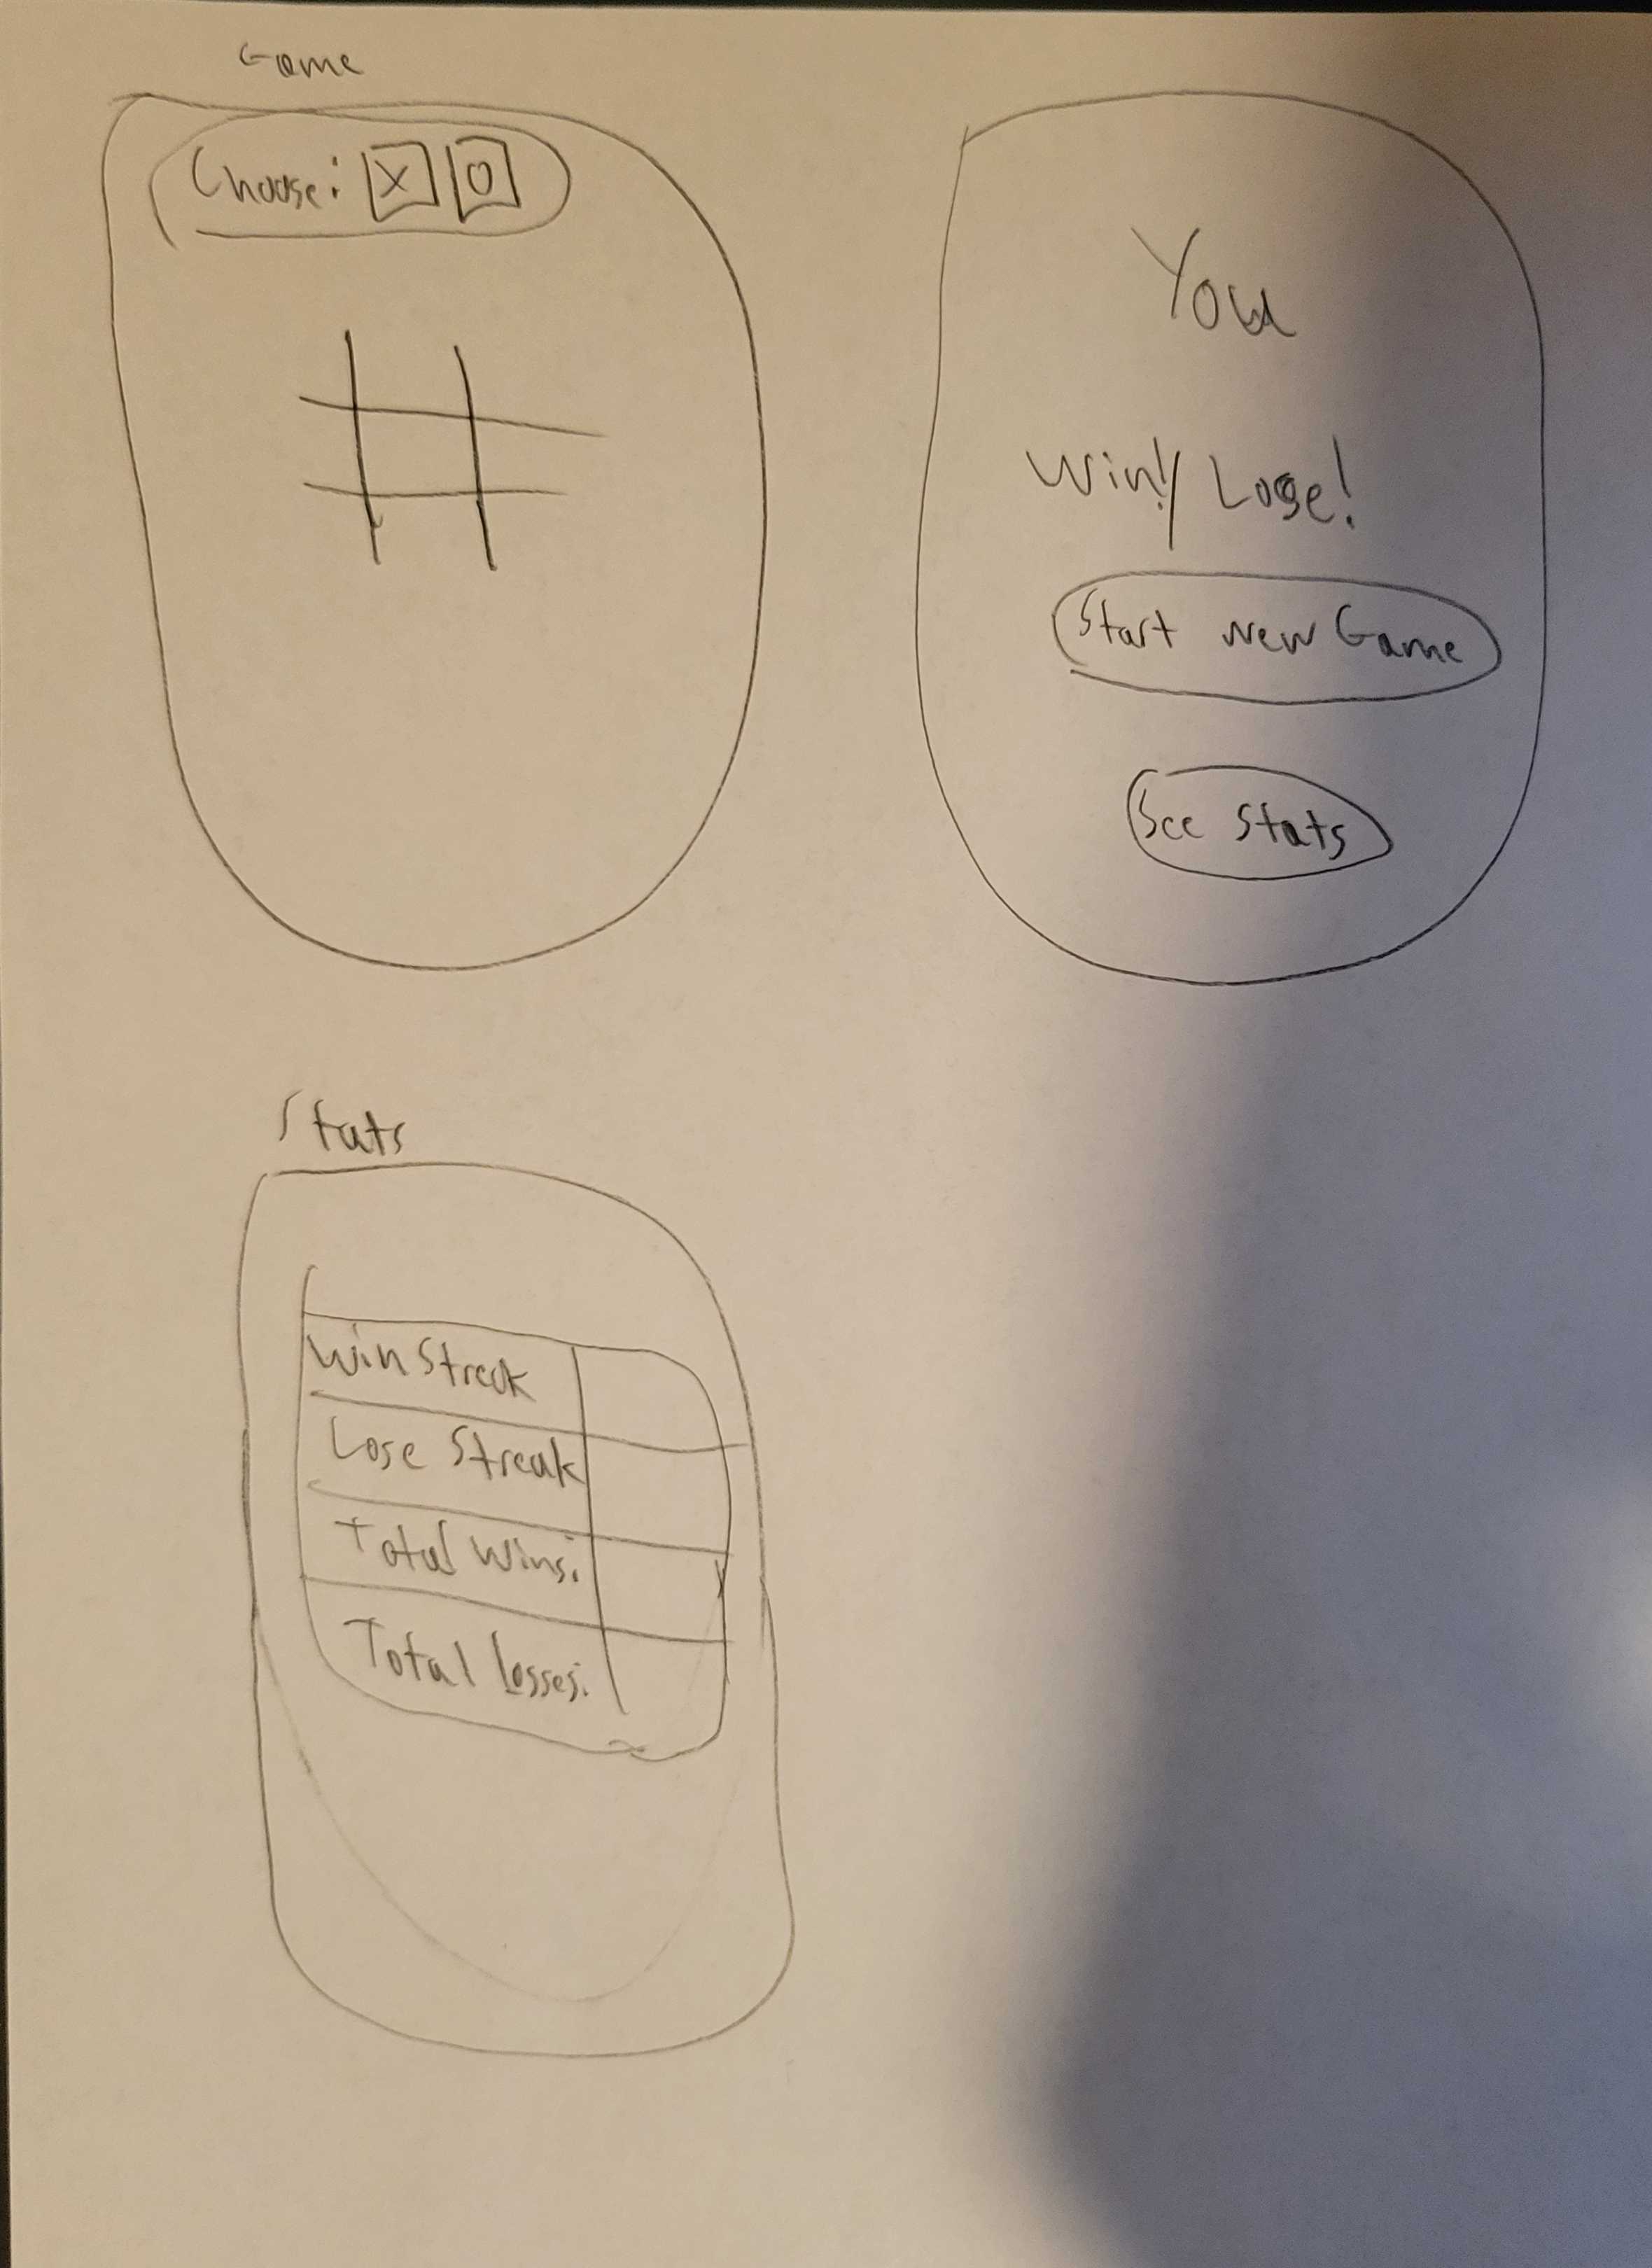 Game
Choose: X O
You
Win!/ Lose!
Start New Game
See Stats
Stats
Win Streak
Lose Streak
Total Wins:
Total losses: